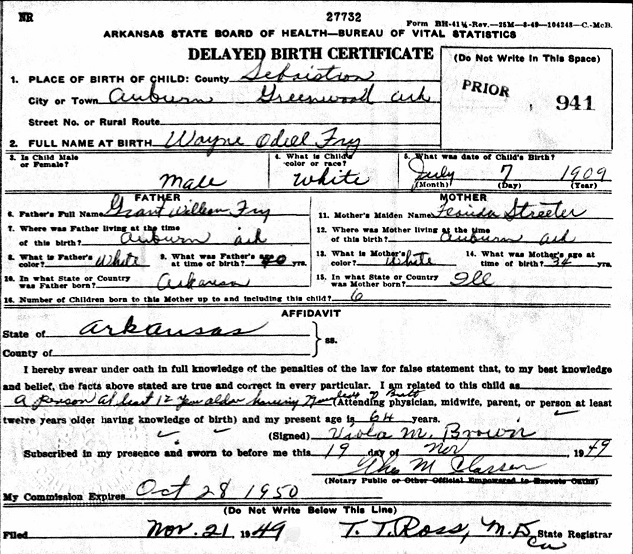 NR 27732 Form BH-41½-Rev.—25M—8-49—104248—C.-McB.
ARKANSAS STATE BOARD OF HEALTH—BUREAU OF VITAL STATISTICS
DELAYED BIRTH CERTIFICATE
(Do Not Write In This Space)
PRIOR 941
1. PLACE OF BIRTH OF CHILD: County Sebaistion
City or Town Auburn Greenwood ark
Street No. or Rural Route
2. FULL NAME AT BIRTH Wayne Odell Fry
3. Is Child Male or Female? Male
4. What is Child's color or race? White
5. What was date of Child's Birth? July 7 1909
(Month) (Day) (Year)
FATHER
6. Father's Full Name Grant William Fry
7. Where was Father living at the time
of this birth? Auburn ark
8. What is Father's color? White 9. What was Father's age at time of birth? 40 yrs.
10. In what State or Country was Father born? Arkansas
MOTHER
11. Mother's Maiden Name Streeter
12. Where was Mother living at the time
of this birth? Auburn ark
13. What is Mother's color? White 14. What was Mother's age at time of birth? 34 yrs.
15. In what State or Country was Mother born? Ill
16. Number of Children born to this Mother up to and including this child? 6
AFFIDAVIT
State of Arkansas
County of
ss.
I hereby swear under oath in full knowledge of the penalties of the law for false statement that, to my best knowledge
and belief, the facts above stated are true and correct in every particular. I am related to this child as
A person at least 12 years older having Knowledge of Birth (Attending physician, midwife, parent, or person at least
twelve years older having knowledge of birth) and my present age is 64 years.
(Signed) Viola M. Brown
Subscribed in my presence and sworn to before me this 19 day of Nov 1949
M Classen
(Notary Public or Other Official Empowered to Execute Oaths)
My Commission Expires Oct 28 1950
(Do Not Write Below This Line)
Filed Nov. 21, 1949 T. T. Ross, M.D. State Registrar